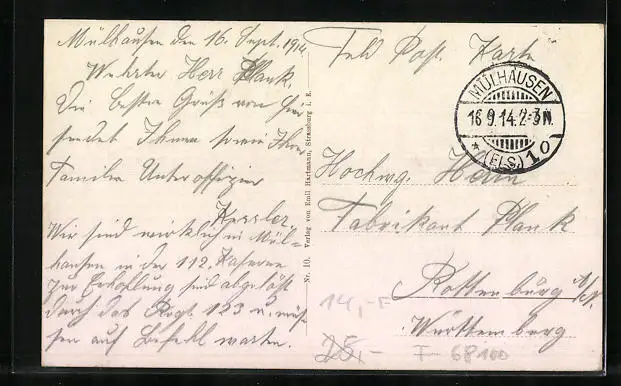 Mülhausen den 16. Sept. 1914.
Wehrter Herr Plank,
Die besten Grüß von hier
sendet Ihnen sowie Ihrer
Familie Unteroffizier
Kessler.
Wir sind wirklich in Mül-
hausen in der 112. Kaserne
zur Erholung sind abgelöst
durch das Regt. 123 u. müs-
sen auf Befehl warten.
Nr. 10. Verlag von Emil Hartmann, Strassburg i. E.
Feld Post Karte
MÜLHAUSEN
16.9.14.2-3N.
* (ELS) 1 o
Hochwg. Herrn
Fabrikant Plank
Rottenburg a/N.
Württemberg
14,-F
25,-
F-68100